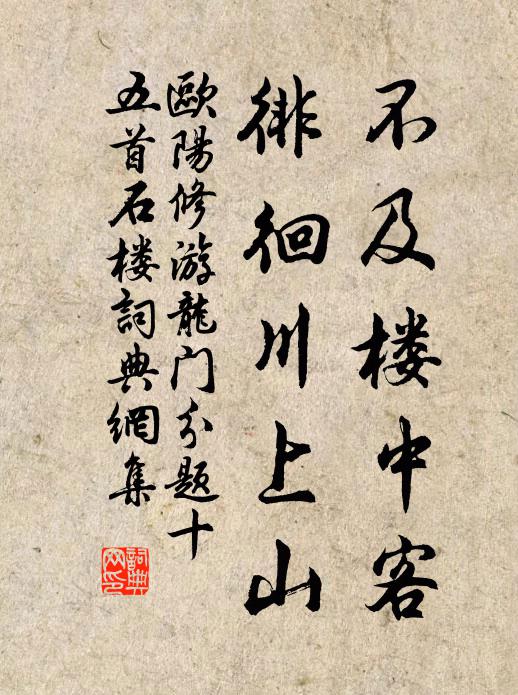 不及楼中客
徘徊川上山
歐陽修游龍门分題十
五首石楼詞典網集
詞典网印